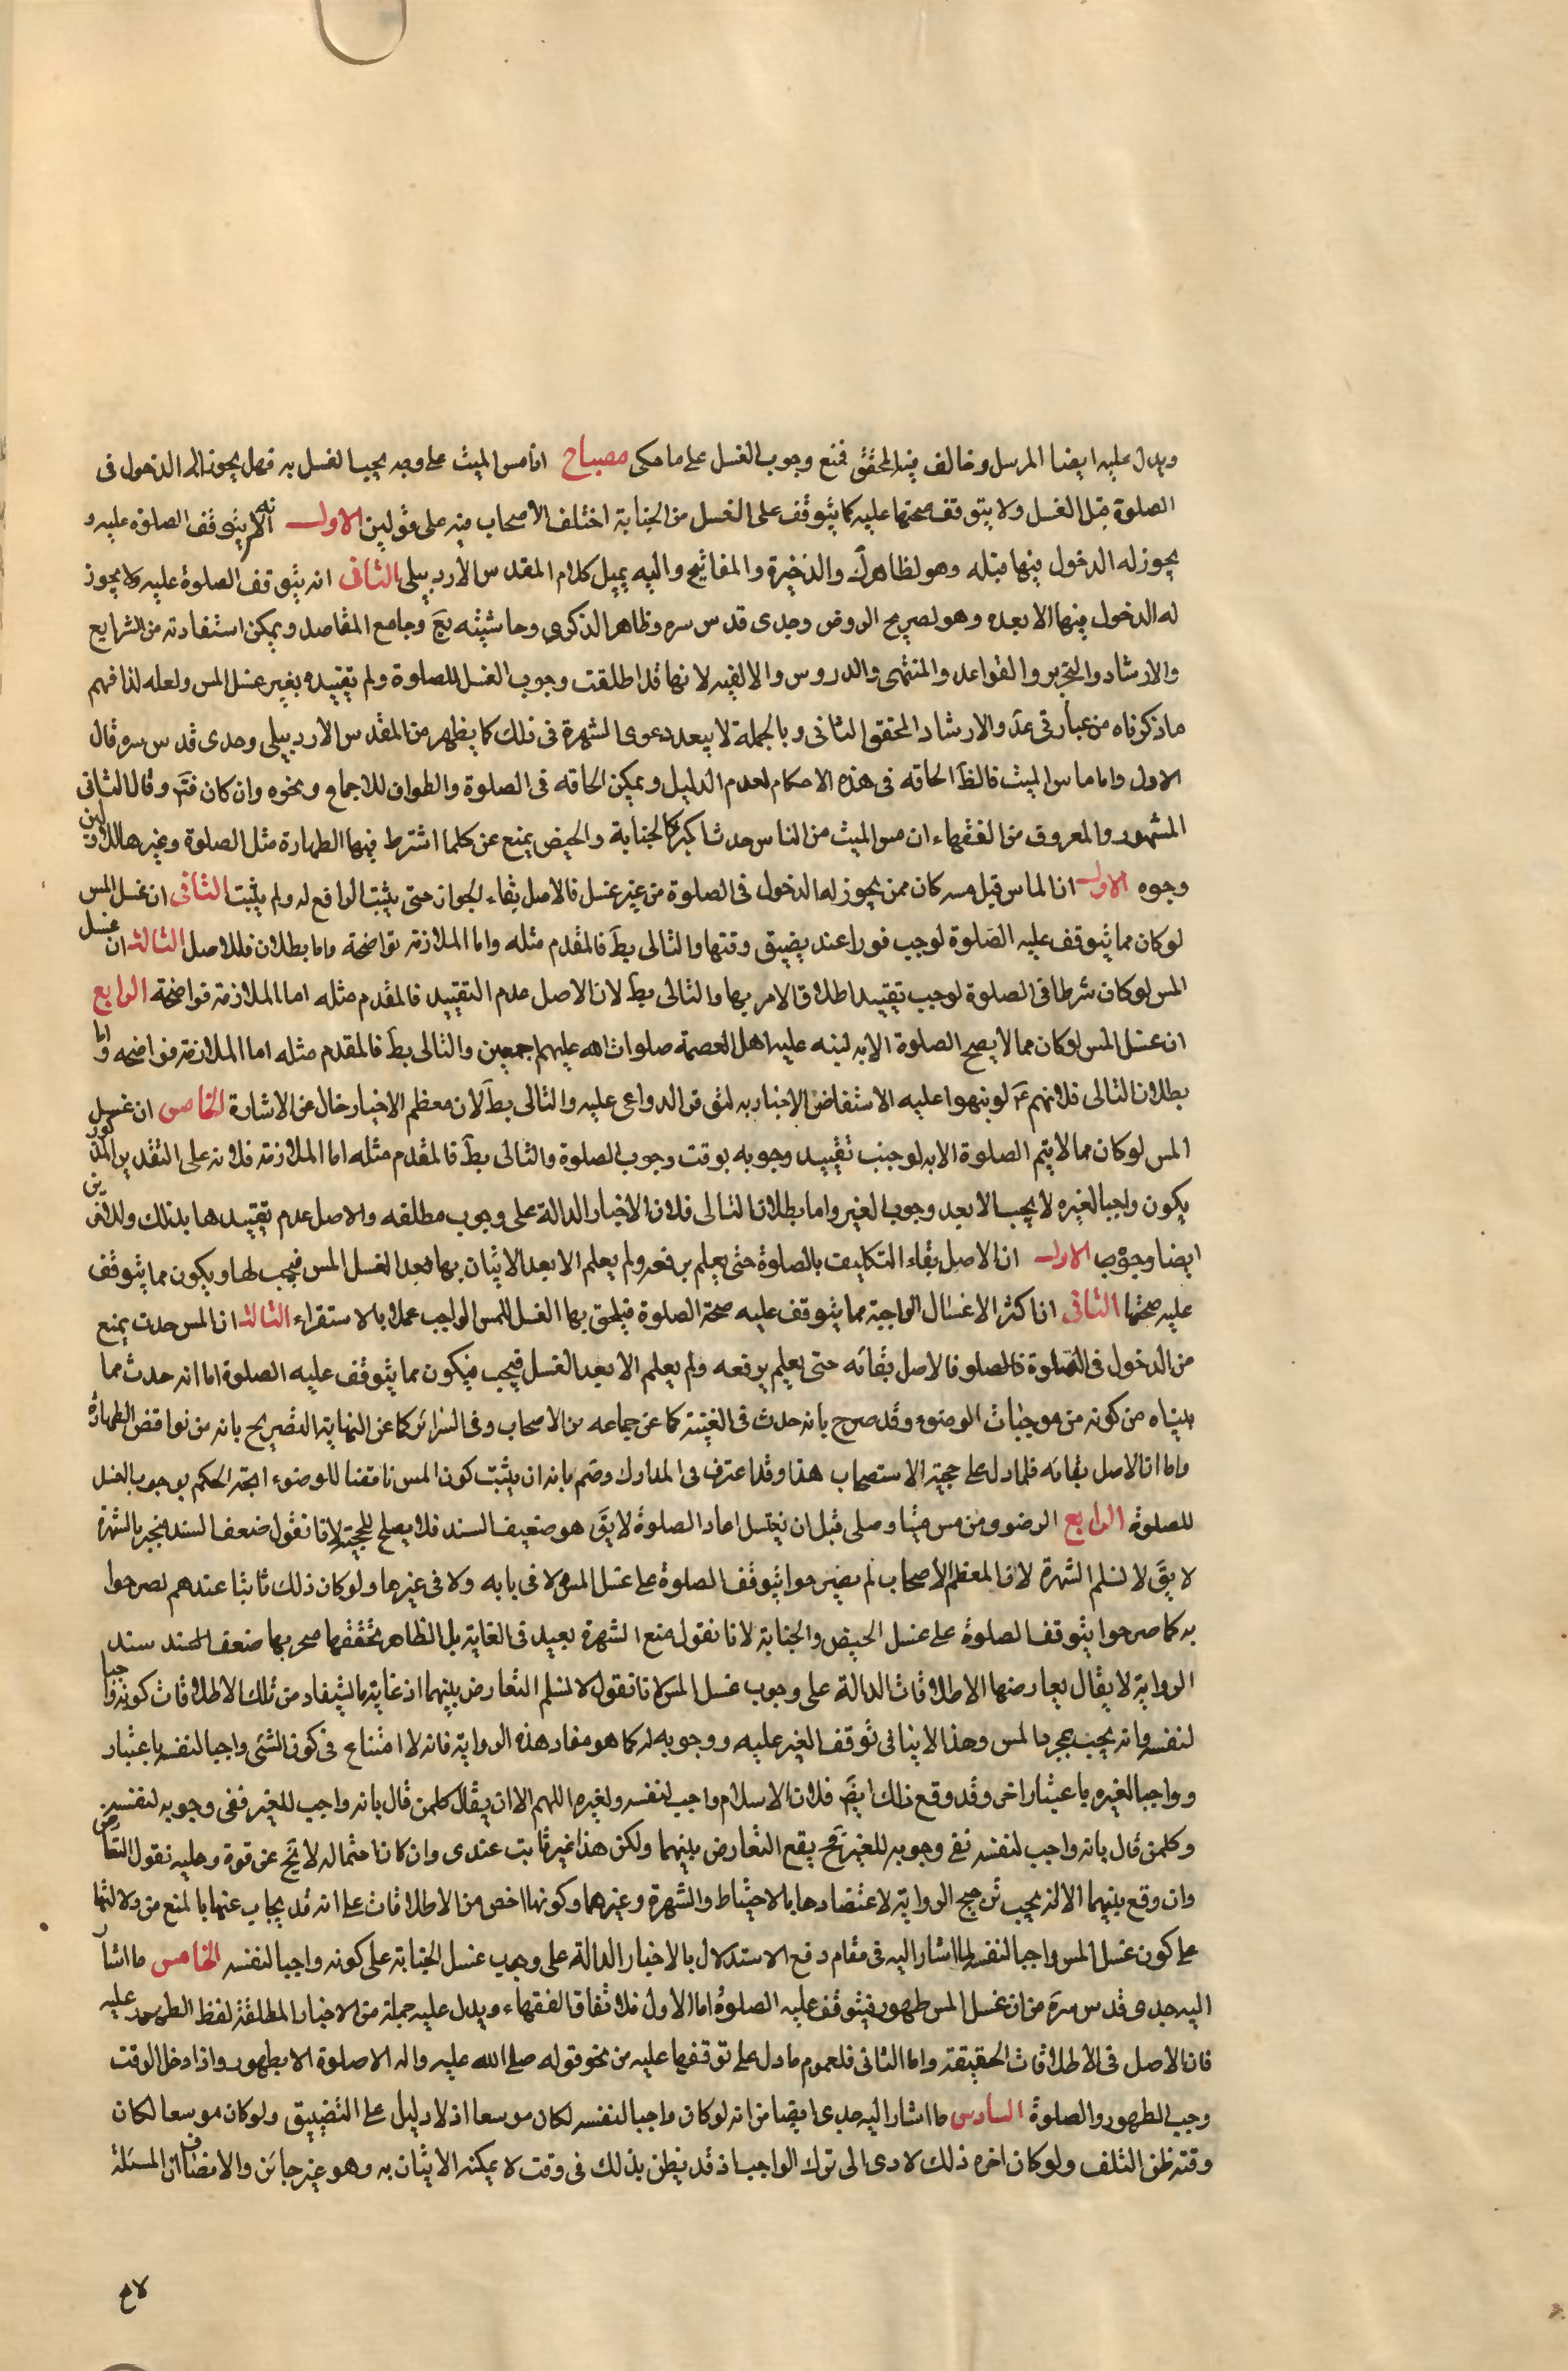 ويدل عليه ايضا المرسل وخالف فيه المحقق فمنع وجوب الغسل على ما حكى مصباح اذا مس الميت على وجه يجب الغسل به فهل يجوز له الدخول فى
الصلوة قبل الغسل ولا يتوقف صحتها عليه كما يتوقف على الغسل من الجنابة اختلف الاصحاب فيه على قولين الاول انه لا يتوقف الصلوة عليه و
يجوز له الدخول فيها قبله وهو لظاهر ك والذخيرة والمفاتيح واليه يميل كلام المقدس الأردبيلى الثانى انه يتوقف الصلوة عليه ولا يجوز
له الدخول فيها الا بعده وهو لصريح الروض وجدى قدس سره وظاهر الذكرى وحاشيته يع وجامع المقاصد ويمكن استفادته من الشرايع
والارشاد والتحرير والقواعد والمنتهى والدروس والالفيه لانها قد اطلقت وجوب الغسل للصلوة ولم تقيده بغير غسل المس ولعله لذا فهم
ما ذكرناه من عبارتى عد والارشاد المحقق الثانى وبالجملة لا يبعد دعوى الشهرة فى ذلك كما يظهر من المقدس الاردبيلى وجدى قدس سره قال
الاول واما ماس الميت فالظ الحاقه فى هذه الاحكام لعدم الدليل ويمكن الحاقه فى الصلوة والطواف للاجماع ونحوه وان كان فتم وقال الثانى
المشهور والمعروف من الفقهاء ان مس الميت من الناس حدث اكبر كالجنابة والحيض يمنع عن كلما اشترط فيها الطهارة مثل الصلوة وغيرها للاولين
وجوه الاول ان الماس قبل مسه كان ممن يجوز له الدخول فى الصلوة من غير غسل فالاصل بقاء الجواز حتى يثبت الرافع له ولم يثبت الثانى ان غسل المس
لو كان مما يتوقف عليه الصلوة لوجب فورا عند يضيق وقتها والتالى بط فالمقدم مثله واما الملازمة فواضحة واما بطلان فللاصل الثالث ان غسل
المس لو كان شرطا فى الصلوة لوجب تقييد اطلاق الامر بها والتالى بط لان الاصل عدم التقييد فالمقدم مثله اما الملازمة فواضحة الرابع
ان غسل المس لو كان مما لا يصح الصلوة الا به لنبه عليه اهل العصمة صلوات الله عليهم اجمعين والتالى بط فالمقدم مثله اما الملازمة فواضحه واما
بطلان التالى فلانهم ع لو نبهوا عليه لاستفاض الاخبار به لتوفر الدواعى عليه والتالى بط لان معظم الاخبار خال من الاشارة الخامس ان غسل
المس لو كان مما لا يتم الصلوة الا به لوجب تقييد وجوبه بوقت وجوب الصلوة والتالى بط فالمقدم مثله اما الملازمة فلانه على التقدير المذكور
يكون واجبا لغيره لا يجب الا بعد وجوب الغير واما بطلان التالى فلان الاخبار الدالة على وجوب مطلقه والاصل عدم تقييدها بذلك وللاخرين
ايضا وجوه الاول ان الاصل بقاء التكليف بالصلوة حتى يعلم برفعه ولم يعلم الا بعد الاتيان بها بعد الغسل المس فيجب لها ويكون مما يتوقف
عليه صحتها الثانى ان اكثر الاغسال الواجبة مما يتوقف عليه صحة الصلوة فيلحق بها الغسل للمس الواجب عملا بالاستقراء الثالث ان المس حدث يمنع
من الدخول فى الصلوة فالاصل بقائه حتى يعلم برفعه ولم يعلم الا بعد الغسل فيجب فيكون مما يتوقف عليه الصلوة اما انه حدث مما
بيناه من كونه من موجبات الوضوء وقد صرح بانه حدث فى الغنية كما عن جماعه من الاصحاب وفى السرائر كما عن النهاية التصريح بانه من نواقض الطهارة
واما ان الاصل بقائه فلما دل على حجية الاستصحاب هذا وقد اعترف فى المدارك وضم بانه ان يثبت كون المس ناقضا للوضوء اتجه الحكم بوجوب الغسل
للصلوة الرابع الرضوى ومن مس ميتا وصلى قبل ان يغتسل اعاد الصلوة لا يق هو ضعيف السند فلا يصلح للحجية لانا نقول ضعف السند منجبر بالشهرة
لا يق لا نسلم الشهرة لان المعظم الأصحاب لم يصرحوا بتوقف الصلوة على غسل المس لا فى بابه ولا فى غيرها ولو كان ذلك ثابتا عندهم لصرحوا
به كما صرحوا بتوقف الصلوة على غسل الحيض والجنابة لانا نقول منع الشهرة بعيد فى الغاية بل الظاهر تحققها فيجبر بها ضعف السند سند
الرواية لا يقال يعارضها الاطلاقات الدالة على وجوب غسل المس لانا نقول لا نسلم التعارض بينهما اذ غاية ما يستفاد من تلك الاطلاقات كونه واجبا
لنفسه وانه يجب بمجرد المس وهذا لا ينافى توقف الغير عليه ووجوبه له كما هو مفاد هذه الرواية فانه لا امتناع فى كون الشئ واجبا لنفسه باعتبار
وواجبا لغيره باعتبار اخر وقد وقع ذلك ايض فلان الاسلام واجب لنفسه ولغيره اللهم الا ان يقال كلمن قال بانه واجب للغير نفى وجوبه لنفسه
وكلمن قال بانه واجب لنفسه نفى وجوبه للغير فح يقع التعارض بينهما ولكن هذا غير ثابت عندى وان كان احتماله لا يخ عن قوة وعليه نقول التعارض
وان وقع بينهما الا انه يجب ترجيح الرواية لاعتضادها بالاحتياط والشهرة وغيرهما وكونها اخص من الاطلاقات على انه قد يجاب عنها بالمنع من دلالتها
على كون غسل المس واجبا لنفسه لما اشار اليه فى مقام دفع الاستدلال بالاخبار الدالة على وجوب غسل الجنابة على كونه واجبا لنفسه الخامس ما اشار
اليه جدى قدس سره من ان غسل المس طهور فيتوقف عليه الصلوة اما الاول فلاتفاق الفقهاء ويدل عليه جملة من الاخبار المطلقة لفظ الطهور عليه
فان الأصل فى الاطلاقات الحقيقة واما الثانى فلعموم ما دل على توقفها عليه من نحو قوله صلى الله عليه واله لا صلوة الا بطهور واذا دخل الوقت
وجب الطهور والصلوة السادس ما اشار اليه جدى ايضا من انه لو كان واجبا لنفسه لكان موسعا اذ لا دليل على التضييق ولو كان موسعا لكان
وقته ظن التلف ولو كان اخره ذلك لادى الى ترك الواجب اذ قد يظن بذلك فى وقت لا يمكنه الاتيان به وهو غير جائز والانصاف ان المسئلة
لا م